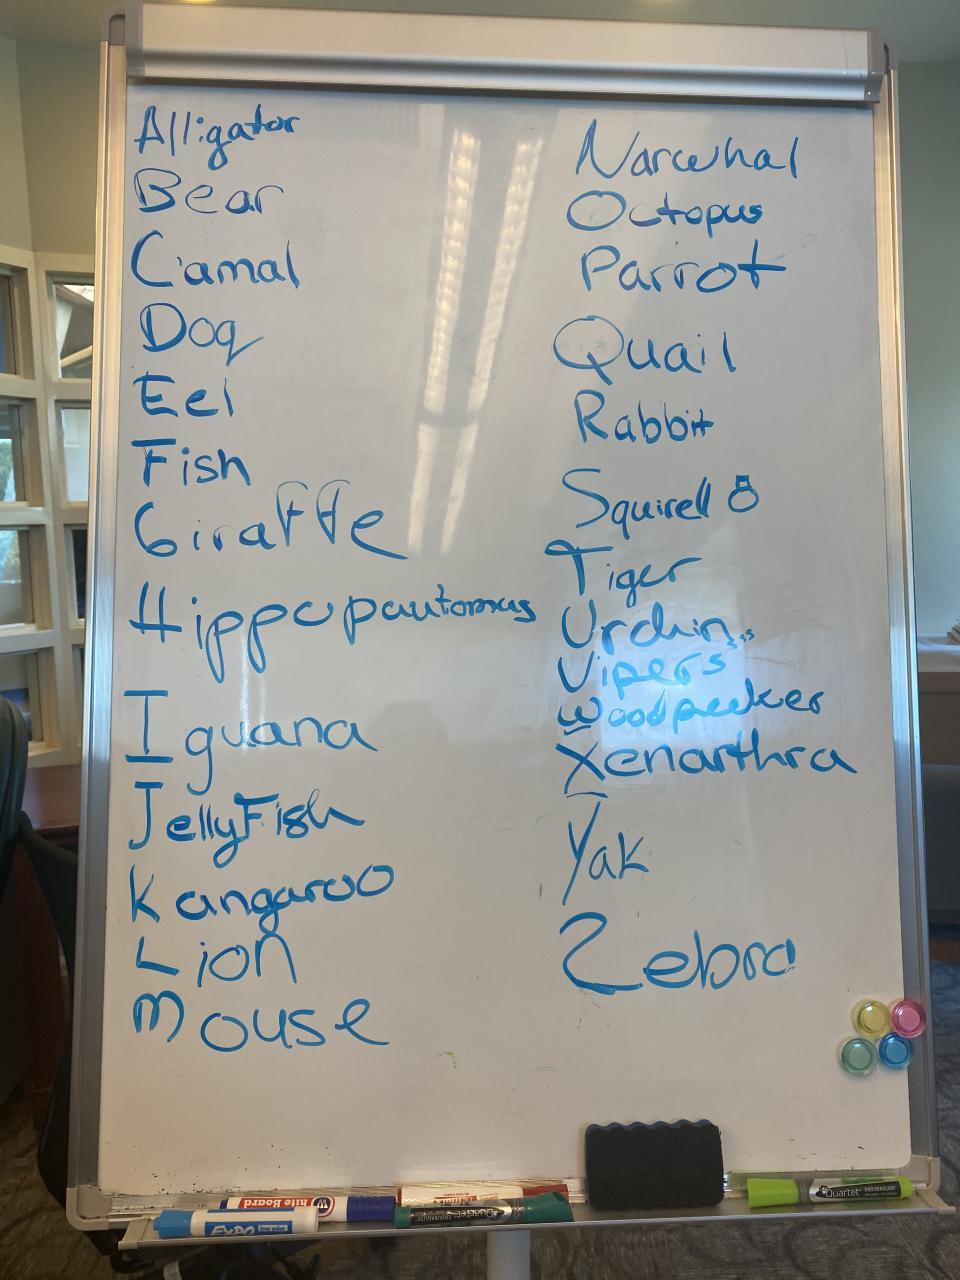 Alligator
Bear
Camal
Dog
Eel
Fish
Giraffe
Hippopautomus
Iguana
JellyFish
Kangaroo
Lion
Mouse
Narwhal
Octopus
Parrot
Quail
Rabbit
Squirell 8
Tiger
Urchin
Vipers
Woodpecker
Xenarthra
Yak
Zebra
EXPO
Quartet
Quartet